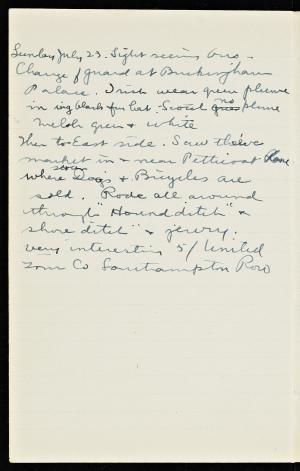 Sunday July 23. Sight seeing bus -
Change of guard at Buckingham
Palace. Irish wear green plume
in big black fur hat - Scotch no plume
Welsh green & white
Then to East side. Saw thieves
market in & near Petticoat Lane
where stolen Dogs & Bicycles are
sold. Rode all around
through "Houndsditch" &
Shoreditch" & Jewry.
very interesting 5/ United
Tour Co Southampton Row